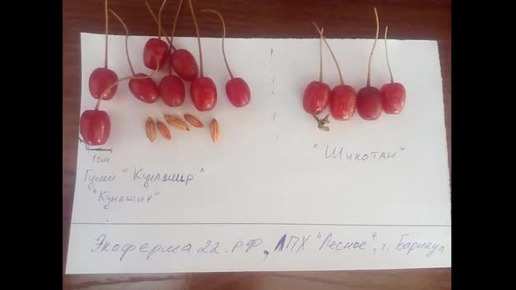 1см
Гуми "Кунашир"
"Кунашир"
"Шикотан"
Экоферма 22.РФ, ЛПХ "Лесное", г. Барнаул